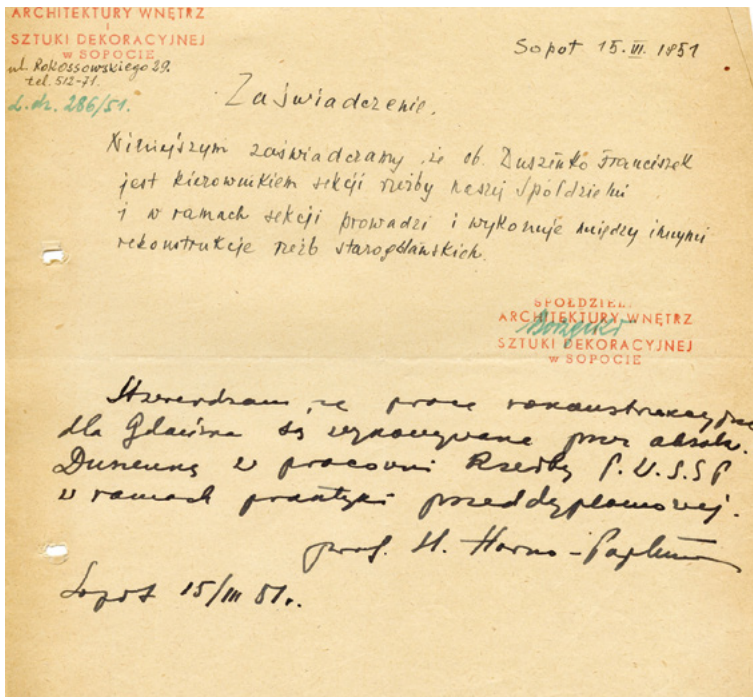 ARCHITEKTURY WNĘTRZ
i
SZTUKI DEKORACYJNEJ
w SOPOCIE
ul. Rokossowskiego 29.
tel. 512-71.
L. dz. 286/51.
Sopot 15. VI. 1951
Zaświadczenie.
Niniejszym zaświadczamy, że ob. Duszeńko Franciszek
jest kierownikiem sekcji rzeźby naszej Spółdzielni
i w ramach sekcji prowadzi i wykonuje między innymi
rekonstrukcje rzeźb starogdańskich.
SPÓŁDZIEL.
ARCHITEKTURY WNĘTRZ
SZTUKI DEKORACYJNEJ
w SOPOCIE
Stwierdzam, że prace rekonstrukcyjne
dla Gdańska są wykonywane przez absolw.
Duszeńkę w pracowni Rzeźby P.W.S.S.P
w ramach praktyki przeddyplomowej.
prof. S. Horno-Popławski
Sopot 15/III 51 r.